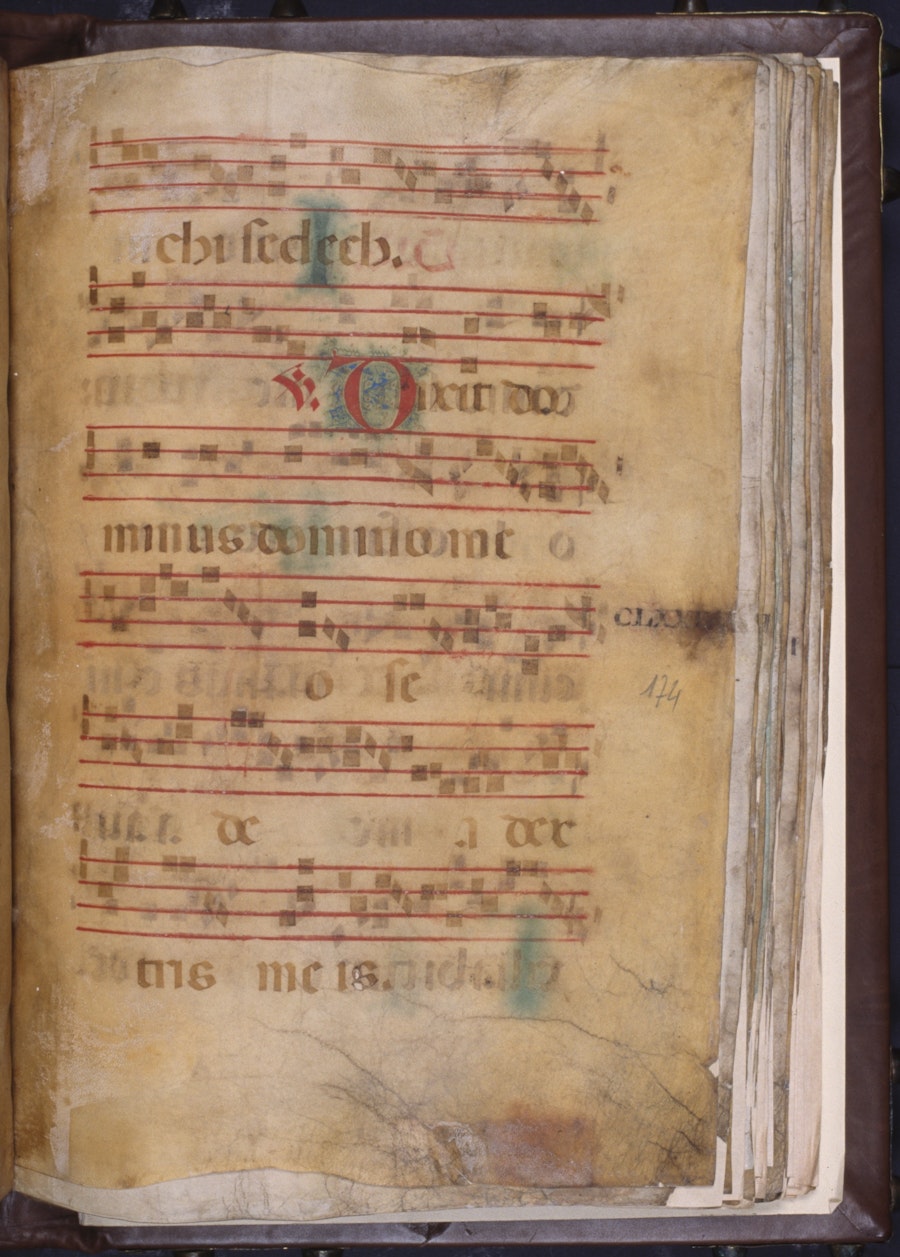 chisedech.
℣. Dixit do
minus domino me o
o se
de a dex
tris me is.
174